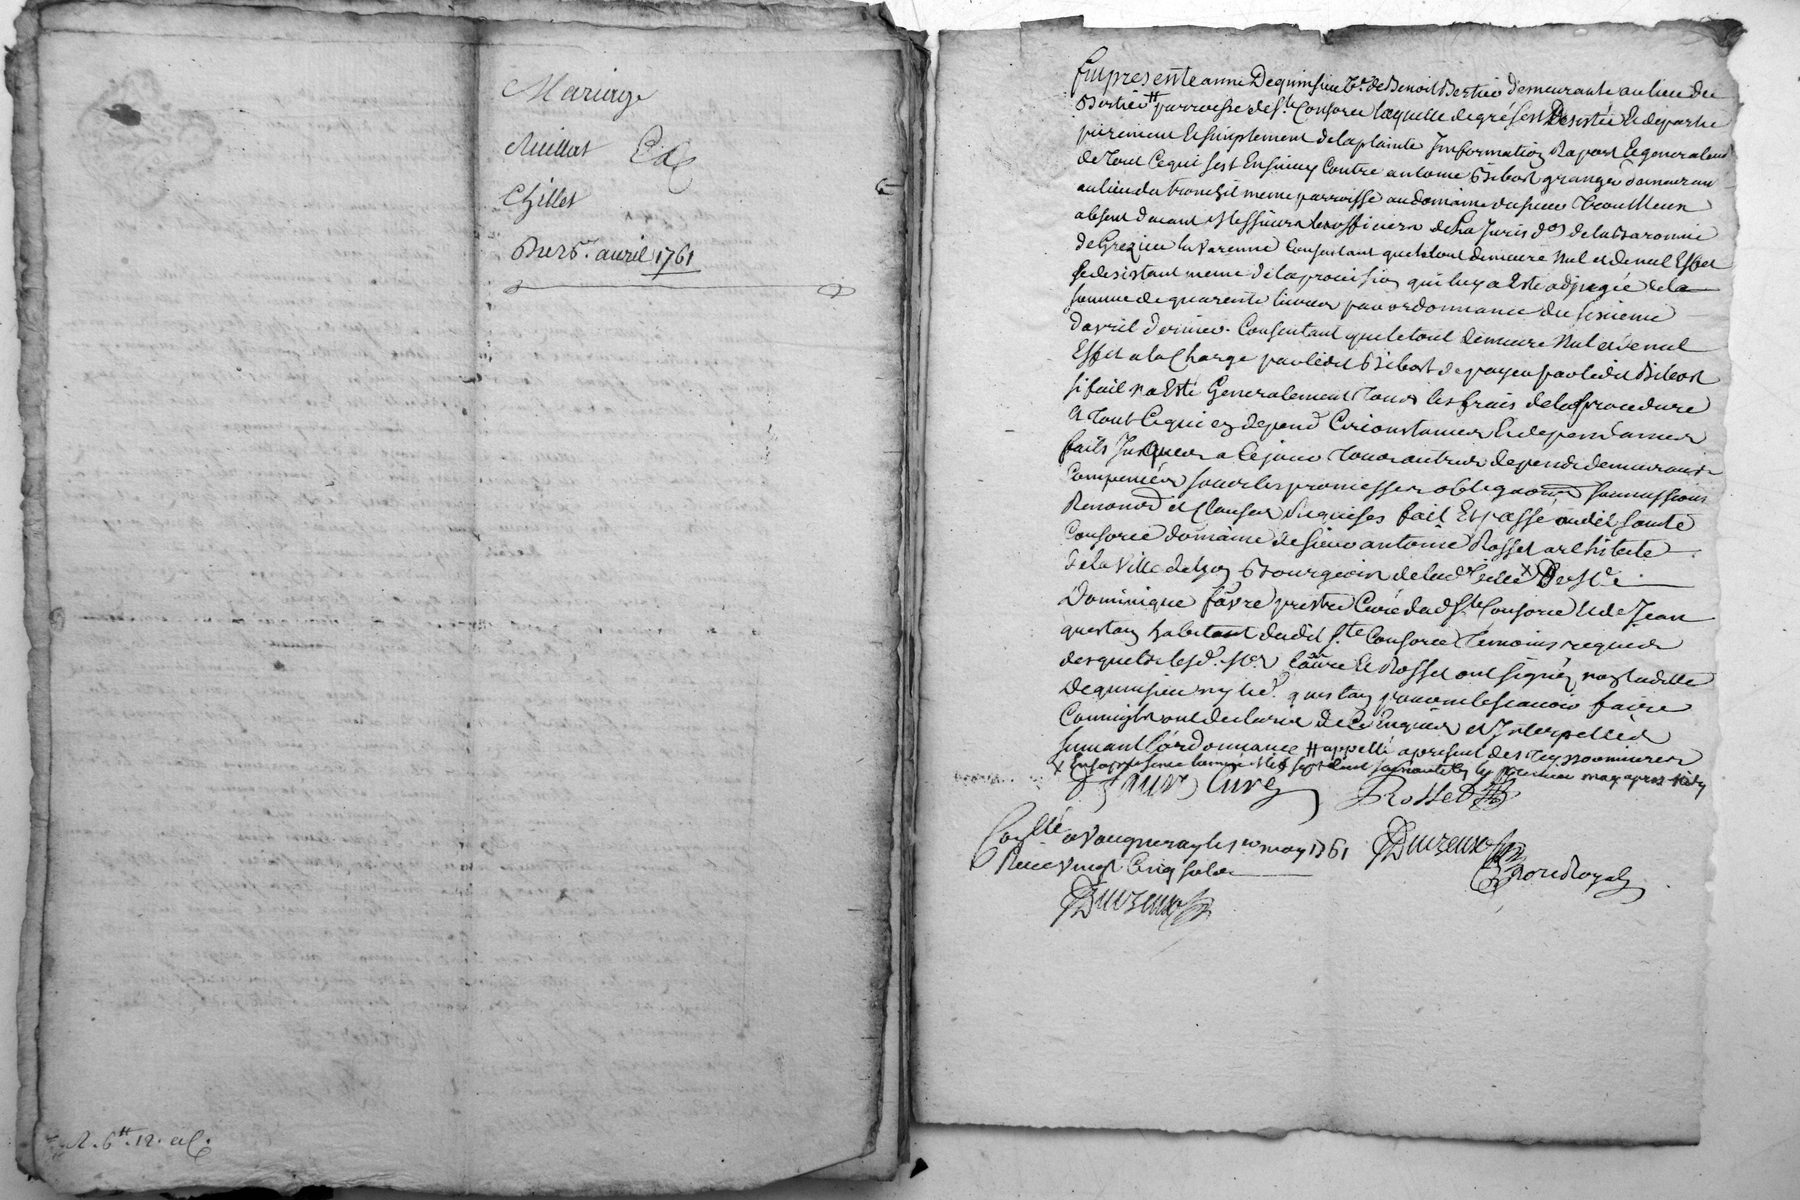 Mariage
Chillet
Du 5e. avril 1761
R. 6tt. 12.
fut presente anne Dequinsieu Ve. de Benoit Bertier demeurante au lieu du
Bertier # parroisse de Ste. Consorce laquelle de gré s'est Desistée et departie
purement et simplement de la plainte Information Raport et generalement
de tout ce qui s'est Ensuivy Contre antoine Bibost granger demeurant
au lieu du meme parroisse au domaine du sieur
absent devant Messieurs les officiers de la Jurisd.on de la Baronnie
de Grezieu la Varenne Consentant que le tout demeure Nul et de nul Effet
se desistant meme de la provision qui luy a Esté adjugée de la
somme de quarente livres par ordonnance du sixieme
davril dernier. Consentant que le tout demeure Nul et de nul
Effet a la Charge par ledit Bibost de payer par ledit Bibost
si fait n'a Esté Generalement tous les frais de la procedure
et tout ce qui en depend Circonstances et dependances
faits Jusques a ce jour tous autres depends demeurants
Compensés sous les promesses obligations soumissions
Renond et Clauses Requises fait Et passé audit sainte
Consorce domaine de sieur antoine Rosset architecte
de la Ville de Lyon Bourgeois de lad. Ville X De Me.
Dominique favre prestre Curé dud Ste Consorce et de Jean
questan habitant dudit Ste Consorce temoins requis
desquels lesd. Srs favre et Rosset ont signés non ladite
Dequinsieu ny led. questan pour ne le scavoir faire
Comme ils ont declaré de ce Enquis et Interpellés
suivant l'ordonnance # appellé apresent des
X En sa presence mil sept Cent soixante Un le premier may apres Midy
favre Curé Rosset
Conllé a Vaugneray le 1er may 1761 Duzeux
Reçu Vingt Cinq sols Nore Royal
Duzeux